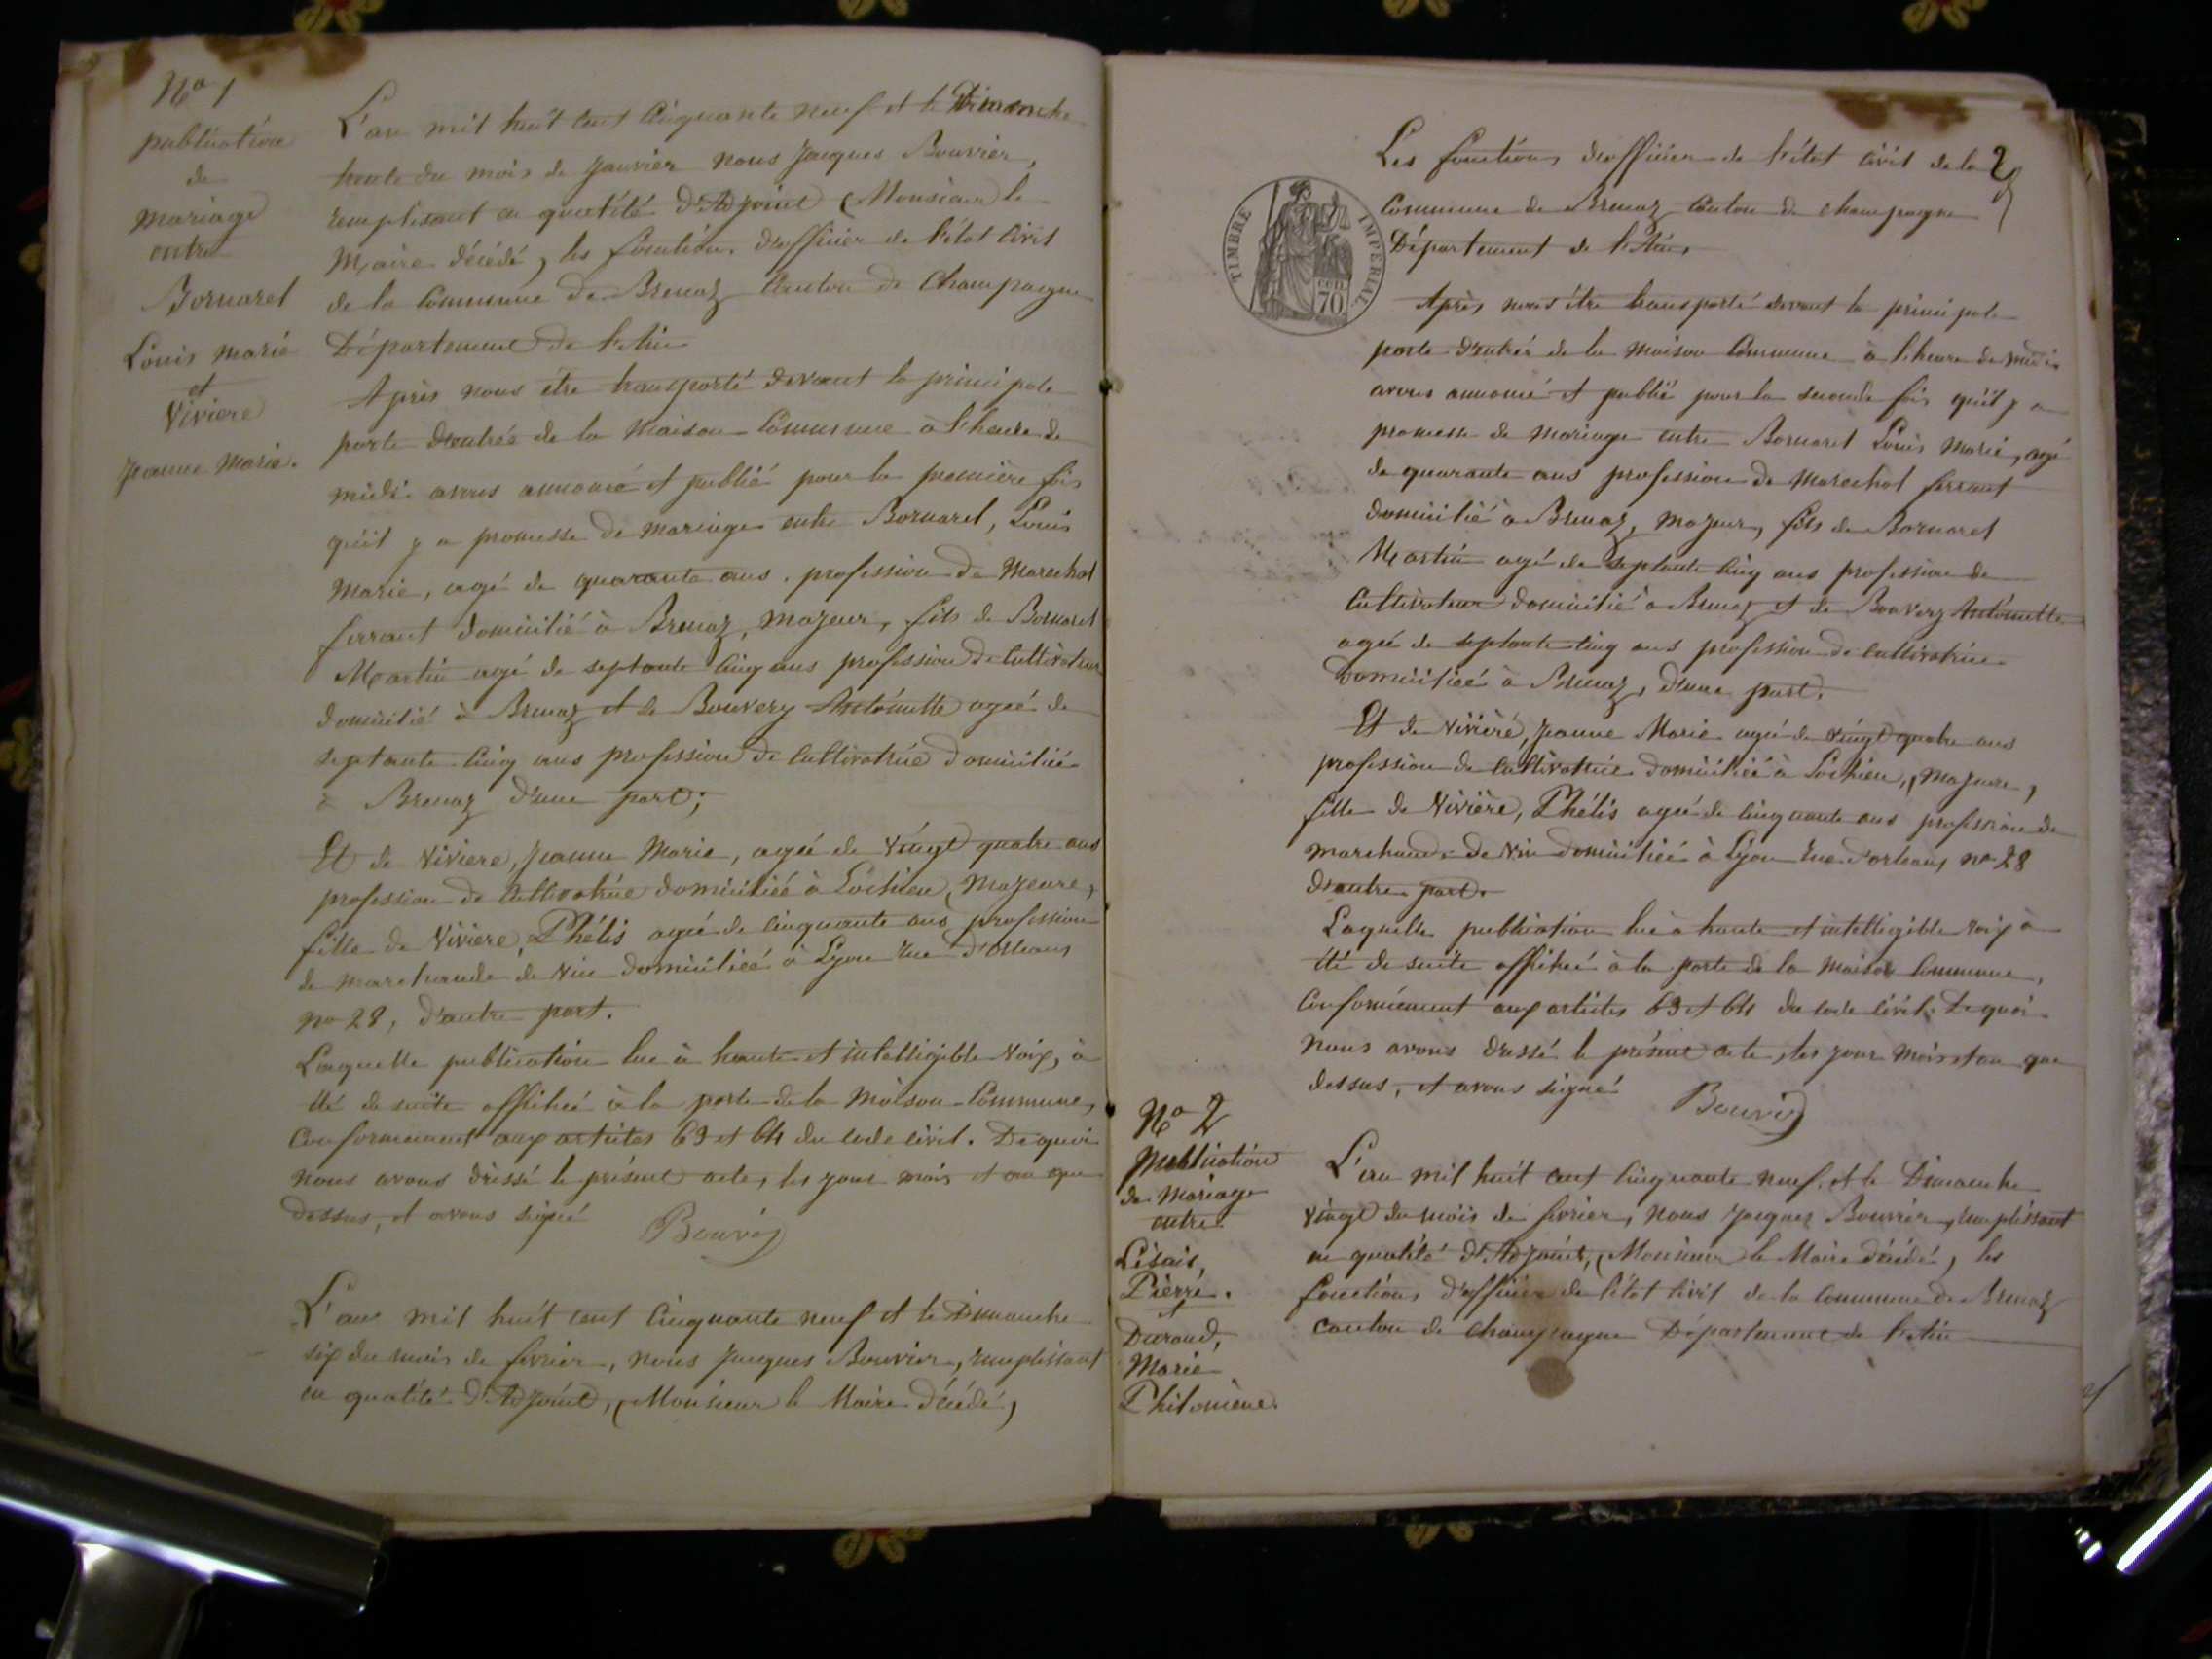 No 1
publication
de
mariage
entre
Bornarel
Louis marie
et
Viviere
Jeanne Marie.
L'an mil huit cent Cinquante neuf et le Dimanche
trente du mois de Janvier nous Jacques Bouvier,
remplissant en qualité d'Adjoint (Monsieur le
Maire décédé, les fonctions d'officier de l'état Civil
de la Commune de Brenaz Canton de Champagne
Département de l'Ain
Après nous être transporté devant la principale
porte d'entrée de la Maison Commune à l'heure de
midi avons annoncé et publié pour la première fois
qu'il y a promesse de mariage entre Bornarel, Louis
Marie, agé de quarante ans, profession de Marechal
ferrant domicilié à Brenaz, majeur, fils de Bornarel
Martin agé de septante Cinq ans profession de Cultivateur
domicilié à Brenaz et de Bouvery Antoinette agée de
septante Cinq ans profession de Cultivatrice domiciliée
à Brenaz d'une part;
Et de Viviere, Jeanne Marie, agée de vingt quatre ans
profession de Cultivatrice domiciliée à Lochieu, Majeure,
fille de Viviere, Phélis agée de Cinquante ans profession
de marchande de vin domiciliée à Lyon rue d'Orleans
no 28, d'autre part.
Laquelle publication lue à haute et intelligible voix, à
été de suite affichée à la porte de la Maison Commune,
Conformement aux articles 63 et 64 du code civil. De quoi
nous avons dressé le présent acte, les jour mois et an que
dessus, et avons signé
Bouvier
L'an mil huit cent Cinquante neuf et le Dimanche
six du mois de fevrier, nous Jacques Bouvier, remplissant
en qualité d'Adjoint, (Monsieur le Maire décédé,
2
TIMBRE IMPERIAL
70
Les fonctions d'officier de l'état civil de la
Commune de Brenaz Canton de champagne
Département de l'Ain
Après nous être transporté devant la principale
porte d'entrée de la maison Commune à l'heure de midi
avons annoncé et publié pour la seconde fois qu'il y a
promesse de mariage entre Bornarel Louis Marie, agé
de quarante ans profession de Marechal ferrant
domicilié à Brenaz, majeur, fils de Bornarel
Martin agé de septante Cinq ans profession de
Cultivateur domicilié à Brenaz et de Bouvery Antoinette
agée de septante Cinq ans profession de cultivatrice
domiciliée à Brenaz, d'une part.
Et de Viviere, Jeanne Marie agée de vingt quatre ans
profession de Cultivatrice domiciliée à Lochieu, Majeure,
fille de Vivière, Phélis agée de Cinquante ans profession de
marchande de vin domiciliée à Lyon rue d'orleans no 28
d'autre part.
Laquelle publication lue à haute et intelligible voix à
été de suite affichée à la porte de la Maison Commune,
Conformément aux articles 63 et 64 du code civil. De quoi
nous avons dressé le présent acte, les jour mois et an que
dessus, et avons signé
Bouvier
No 2
Publication
de Mariage
entre
Pierre.
et
Durand,
Marie
Philomène.
L'an mil huit cent Cinquante neuf, et le Dimanche
vingt du mois de fevrier, nous Jacques Bouvier, remplissant
en qualité d'Adjoint, (Monsieur le Maire décédé, les
fonctions d'officier de l'état Civil de la Commune de Brenaz
canton de Champagne Département de l'Ain